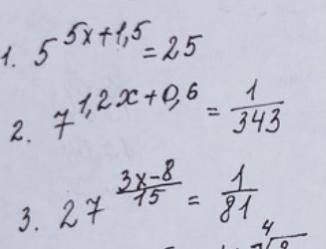 1. 5^(5x+1,5) = 25
2. 7^(1,2x+0,6) = 1/343
3. 27^((3x-8)/15) = 1/81